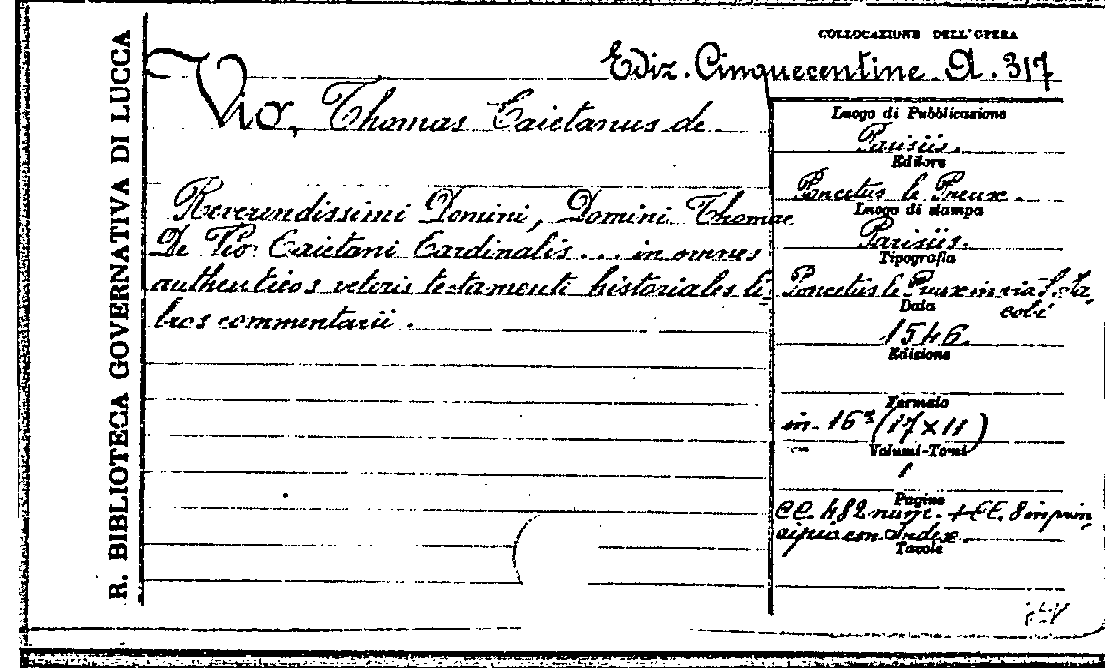 R. BIBLIOTECA GOVERNATIVA DI LUCCA
COLLOCAZIONE DELL'OPERA
Ediz. Cinquecentine A. 317
Vio, Thomas Caietanus de
Reverendissimi Domini, Domini Thomae
De Vio Caietani Cardinalis ... in omnes
authenticos veteris testamenti historiales li-
bros commentarii.
Luogo di Pubblicazione
Parisiis.
Editore
Poncetus le Preux.
Luogo di stampa
Parisiis.
Tipografia
Poncetus le Preux in via S. Ja
cobi
Data
1546.
Edizione
Formato
in-16º (17 x 11)
Volumi-Tomi
1
Pagine
CC. 482 num. + CC. 8 in prin
cipio con Index.
Tavole